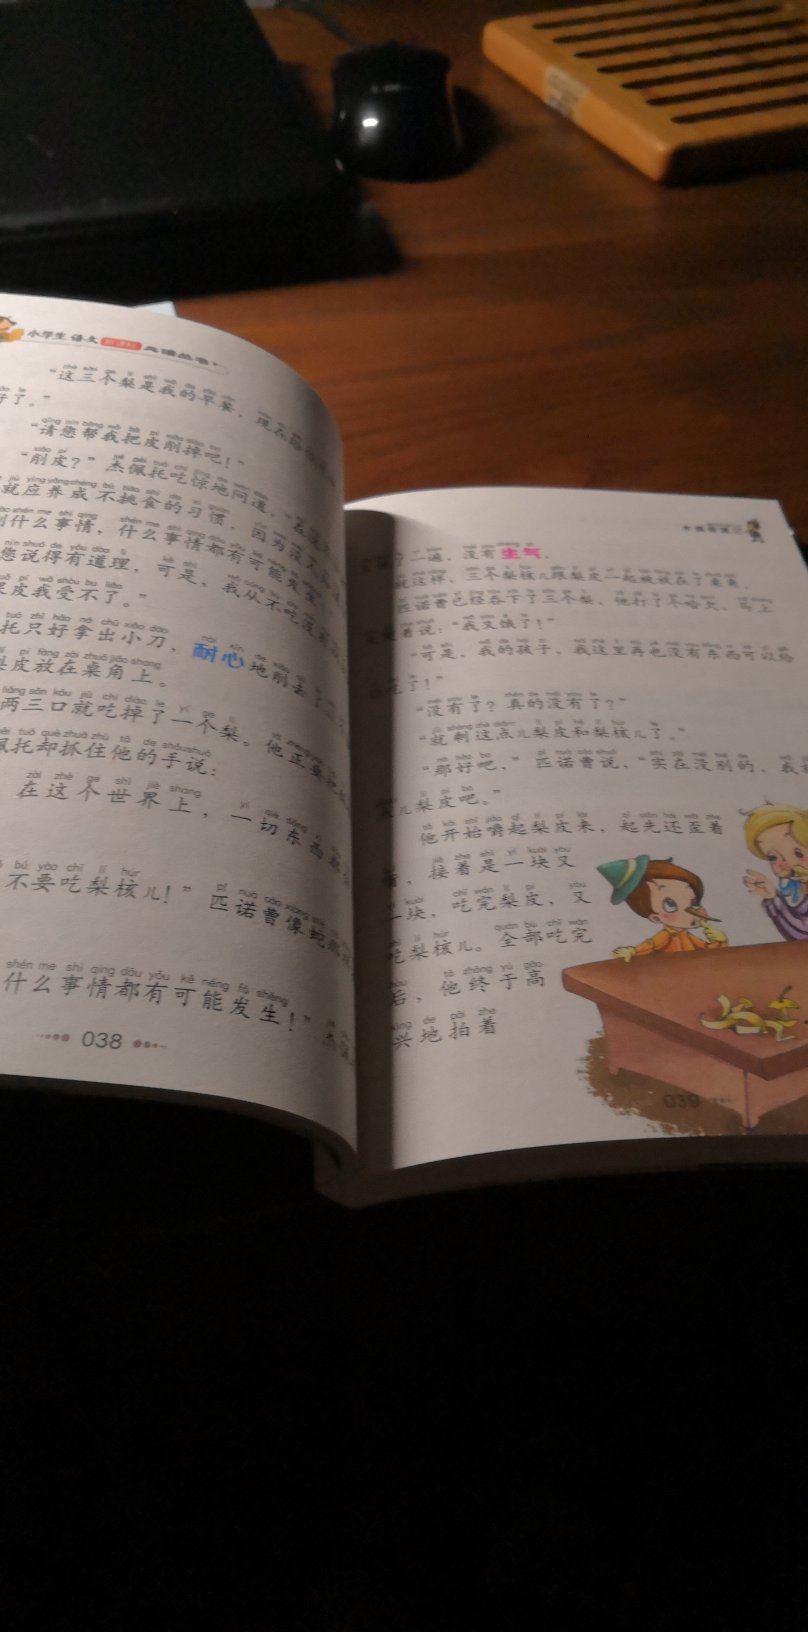 小学生 语文
“这三个梨是我的早餐，现在
好了。”
“请您帮我把皮削掉吧！”
“削皮？”杰佩托吃惊地问道，“在这
就应养成不挑食的习惯，因为
什么事情，什么事情都有可能发生
您说得有道理，可是，我从不吃没
皮我受不了。”
托只好拿出小刀，耐心地削去了
皮放在桌角上。
两三口就吃掉了一个梨。他正要把
佩托却抓住他的手说：
在这个世界上，一切东西都
不要吃梨核儿！”匹诺曹像蛇
什么事情都有可能发生！”杰
038
木偶奇遇记
了一遍，没有生气。
就这样，三个梨核儿跟梨皮一起被放在了桌角。
匹诺曹已经吞下了三个梨，他打了个哈欠，马上
着说：“我又饿了！”
“可是，我的孩子，我这里再也没有东西可以给
吃了！”
“没有了？真的没有了？”
“就剩这点儿梨皮和梨核儿了。”
“那好吧，”匹诺曹说，“实在没别的，我
儿梨皮吧。”
他开始嚼起梨皮来，起先还歪着
嘴，接着是一块又
一块，吃完梨皮，又
吃梨核儿。全部吃完
后，他终于高
兴地拍着
039